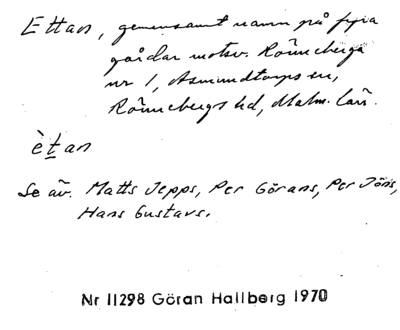 Ettan, gemensamt namn på fyra
gårdar motsv. Rönneberga
nr 1, Asmundtorps sn,
Rönnebergs hd, Malm. län.
ètan
Se äv. Matts Jepps, Per Görans, Per Jöns,
Hans Gustavs.
Nr 11298 Göran Hallberg 1970